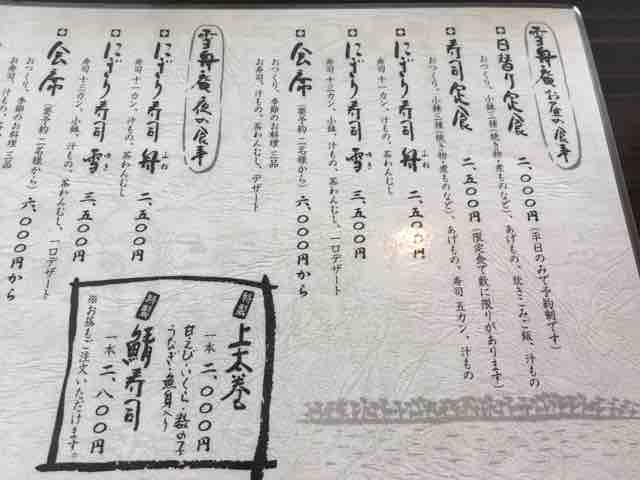 雪舟庵 お昼の食事
日替り定食 二、〇〇〇円(平日のみで予約制です)
おつくり、小鉢三種(焼き物・煮ものなど)、あげもの、炊きこみご飯、汁もの
寿司定食 二、五〇〇円(限定食で数に限りがあります)
おつくり、小鉢三種(焼き物・煮ものなど)、あげもの、寿司五カン、汁もの
にぎり寿司 舟 ふね 二、五〇〇円
寿司十一カン、汁もの、茶わんむし
にぎり寿司 雪 ゆき 三、五〇〇円
寿司十三カン、小鉢、汁もの、茶わんむし、一口デザート
会席 (要予約 二名様から) 六、〇〇〇円から
おつくり、季節のお料理三品
お寿司、汁もの、茶わんむし、デザート
雪舟庵 夜の食事
にぎり寿司 舟 ふね 二、五〇〇円
寿司十一カン、汁もの、茶わんむし
にぎり寿司 雪 ゆき 三、五〇〇円
寿司十三カン、小鉢、汁もの、茶わんむし、一口デザート
会席 (要予約 二名様から) 六、〇〇〇円から
おつくり、季節のお料理三品
お寿司、汁もの、茶わん
上太巻
一本 二、〇〇〇円
甘えび・いくら・数の子
うなぎ・魚身入り
鯖寿司
一本 二、八〇〇円
※お持ちご注文いただけます。